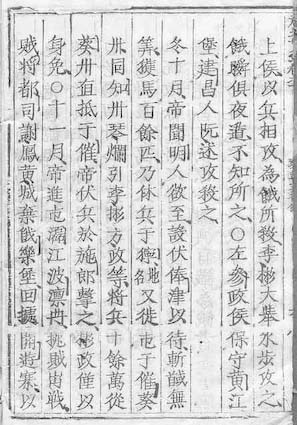 上侯以兵相攻為餓所殺李彬大舉水步攻之
餓鱗俱夜遁不知所之〇左參政侯保守黃江
堡建昌人阮述攻殺之
冬十月帝聞明人欲至設伏俸津以待斬馘無
筭獲馬百餘匹乃休兵于地名又徙屯于催葵
冊同知冊琴爛引李彬方政等將兵十餘萬從
葵冊直抵于催帝伏兵於施郎擊之彬政僅以
身免〇十一月帝進屯江波冊挑賊出戰
賊將都司謝鳳黃城棄餓樂堡回據開遊寨以